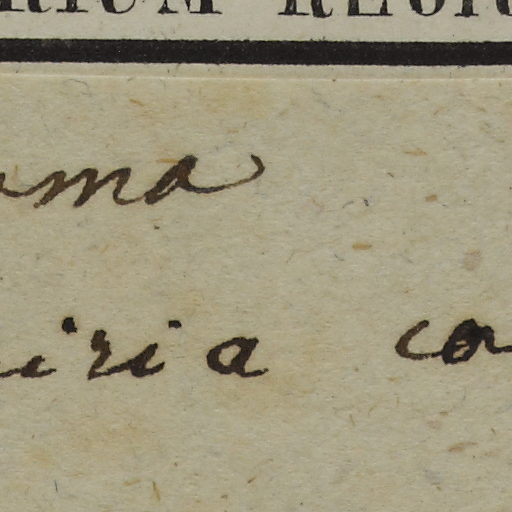 RIUM REGI
ma
iria co